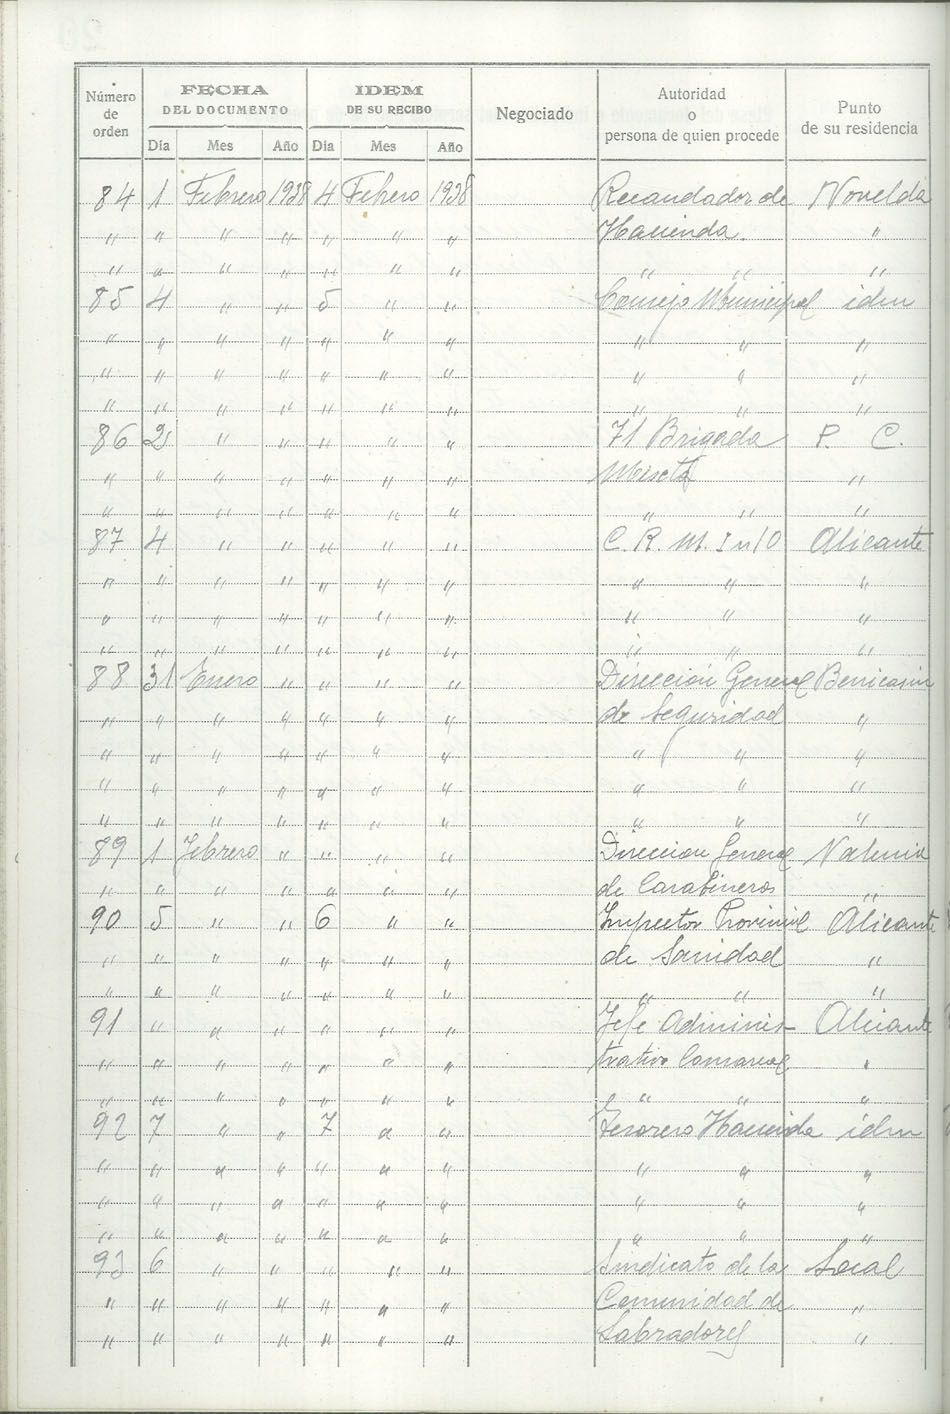 Número de orden | FECHA DEL DOCUMENTO | IDEM DE SU RECIBO | Negociado | Autoridad o persona de quien procede | Punto de su residencia
Dia | Mes | Año | Dia | Mes | Año
84 1 Febrero 1938 4 Febrero 1938 Recaudador de Novelda
" " " " " " " Hacienda. "
" " " " " " " " " "
85 4 " " 5 " " Consejo Municipal idm
" " " " " " " " " "
" " " " " " " " " "
" " " " " " " " " "
86 2 " " " " " 71 Brigada P. C.
" " " " " " " Mixta "
" " " " " " " " " "
87 4 " " " " " C. R. M. I nº 10 Alicante
" " " " " " " " " "
" " " " " " " " " "
" " " " " " " " " "
88 31 Enero " " " " Dirección General Benicasin
" " " " " " " de Seguridad "
" " " " " " " " " "
" " " " " " " " " "
" " " " " " " " " "
89 1 Febrero " " " " Direccion General Valencia
" " " " " " " de Carabineros "
90 5 " " 6 " " Inspector Provincial Alicante
" " " " " " " de Sanidad "
" " " " " " " " " "
91 " " " " " " Jefe Adminis- Alicante
" " " " " " " trativo Comarcal "
" " " " " " " " " "
92 7 " " 7 " " Tesorero Hacienda idm
" " " " " " " " " "
" " " " " " " " " "
" " " " " " " " " "
93 6 " " " " " Sindicato de la Local
" " " " " " " Comunidad de "
" " " " " " " Labradores "